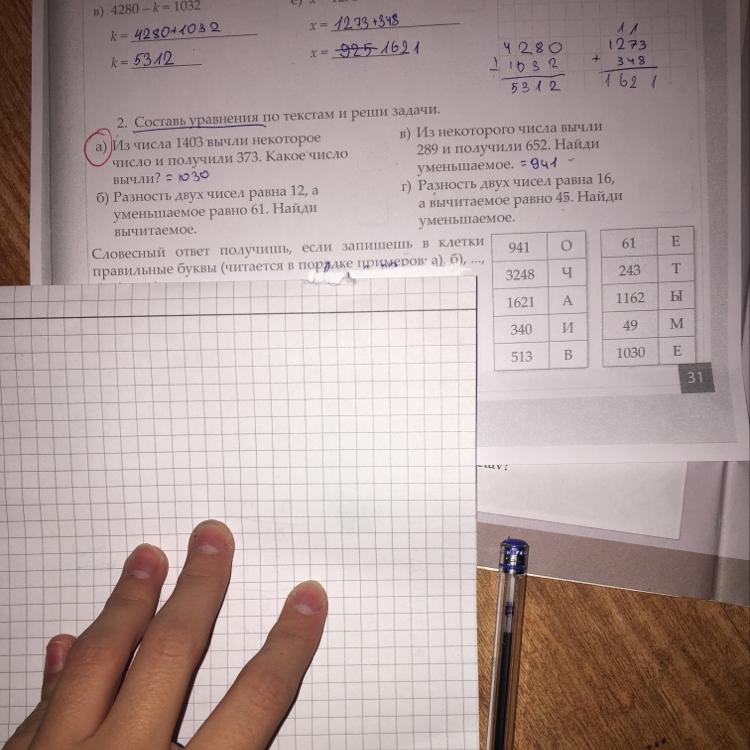 в) 4280 – k = 1032
k = 4280+1032
k = 5312
x = 1273+348
x = 925 1621
4280
1032
5312
11
1273
+ 348
1621
2. Составь уравнения по текстам и реши задачи.
а) Из числа 1403 вычли некоторое
число и получили 373. Какое число
вычли? = 1030
б) Разность двух чисел равна 12, а
уменьшаемое равно 61. Найди
вычитаемое.
в) Из некоторого числа вычли
289 и получили 652. Найди
уменьшаемое. = 941
г) Разность двух чисел равна 16,
а вычитаемое равно 45. Найди
уменьшаемое.
Словесный ответ получишь, если запишешь в клетки
правильные буквы (читается в порядке примеров: а), б), ...,
941 О
3248 Ч
1621 А
340 И
513 В
61 Е
243 Т
1162 Ы
49 М
1030 Е
31